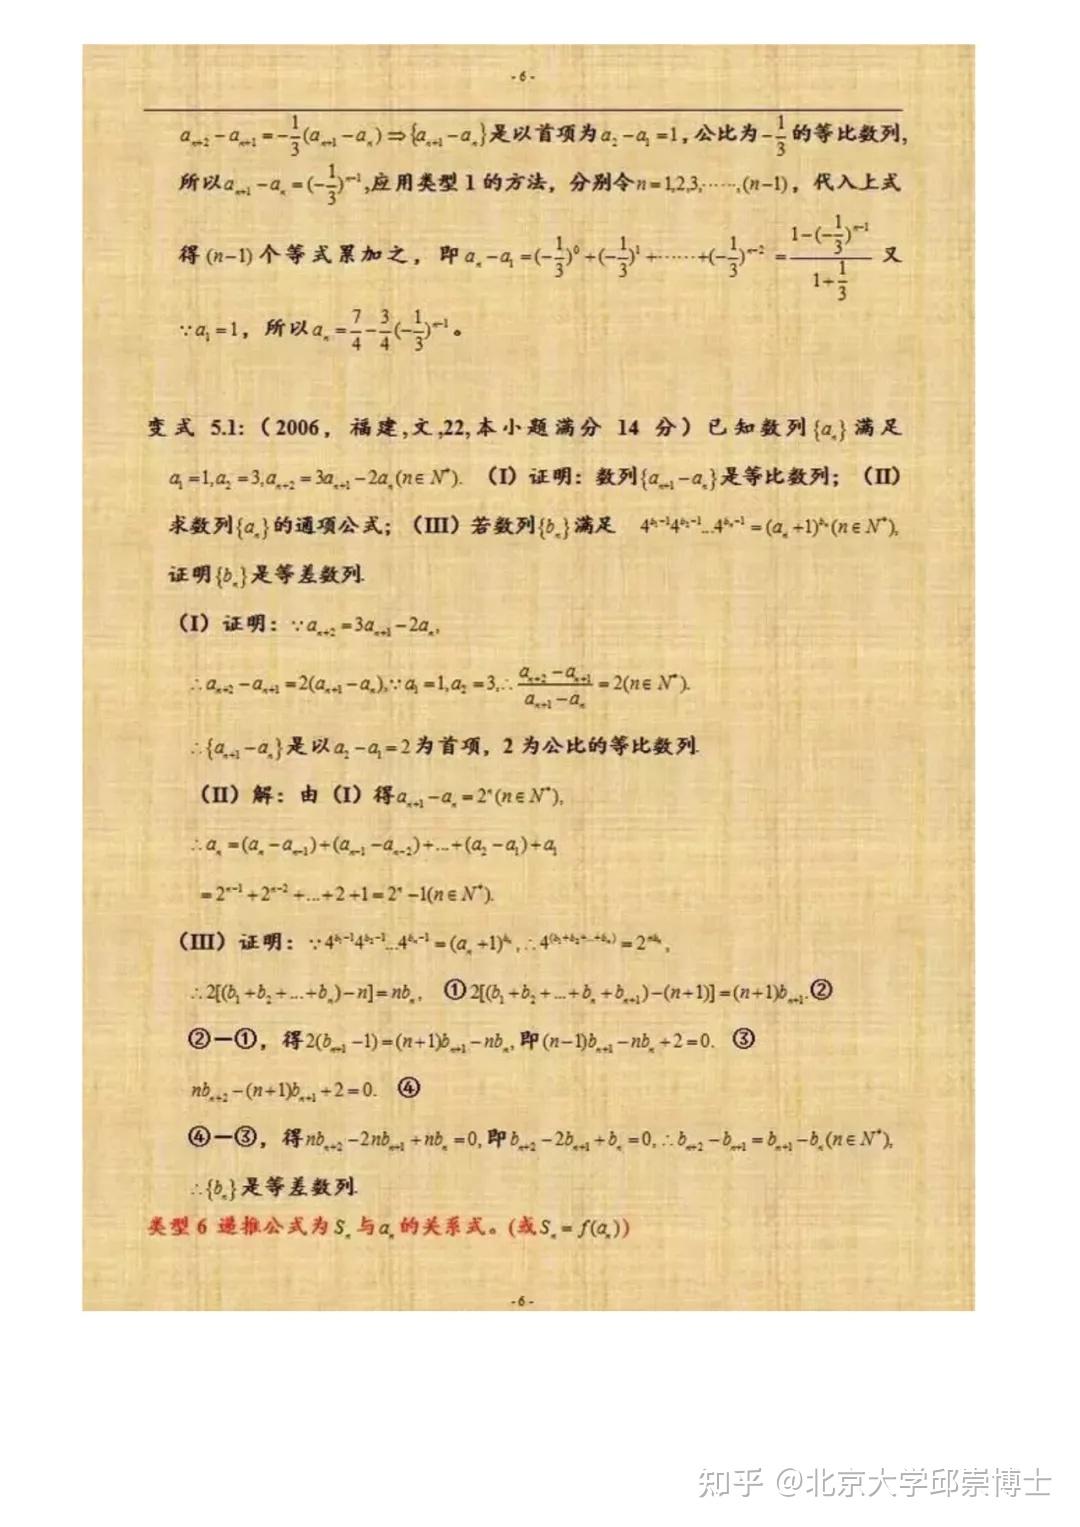 - 6 -
a_{n+2} - a_{n+1} = -\frac{1}{3}(a_{n+1} - a_n) ⇒ {a_{n+1} - a_n}是以首项为a_2 - a_1 = 1，公比为-\frac{1}{3}的等比数列，
所以a_{n+1} - a_n = (-\frac{1}{3})^{n-1},应用类型1的方法，分别令n = 1,2,3,……,(n-1)，代入上式
得(n-1)个等式累加之，即a_n - a_1 = (-\frac{1}{3})^0 + (-\frac{1}{3})^1 + …… + (-\frac{1}{3})^{n-2} = \frac{1-(-\frac{1}{3})^{n-1}}{1+\frac{1}{3}} 又
∵a_1 = 1，所以a_n = \frac{7}{4} - \frac{3}{4}(-\frac{1}{3})^{n-1}。
变式 5.1:（2006，福建,文,22,本小题满分 14 分）已知数列{a_n}满足
a_1 = 1, a_2 = 3, a_{n+2} = 3a_{n+1} - 2a_n (n∈N^*). （I）证明：数列{a_{n+1} - a_n}是等比数列；（II）
求数列{a_n}的通项公式；（III）若数列{b_n}满足 4^{b_1-1}4^{b_2-1}...4^{b_n-1} = (a_n+1)^{b_n} (n∈N^*),
证明{b_n}是等差数列.
（I）证明：∵a_{n+2} = 3a_{n+1} - 2a_n,
∴a_{n+2} - a_{n+1} = 2(a_{n+1} - a_n),∵a_1 = 1, a_2 = 3,∴\frac{a_{n+2} - a_{n+1}}{a_{n+1} - a_n} = 2(n∈N^*).
∴{a_{n+1} - a_n}是以a_2 - a_1 = 2为首项，2为公比的等比数列.
（II）解：由（I）得a_{n+1} - a_n = 2^n (n∈N^*),
∴a_n = (a_n - a_{n-1}) + (a_{n-1} - a_{n-2}) + ... + (a_2 - a_1) + a_1
= 2^{n-1} + 2^{n-2} + ... + 2 + 1 = 2^n - 1(n∈N^*).
（III）证明：∵4^{b_1-1}4^{b_2-1}...4^{b_n-1} = (a_n+1)^{b_n},∴4^{(b_1+b_2+...+b_n)} = 2^{nb_n},
∴2[(b_1 + b_2 + ... + b_n) - n] = nb_n, ①2[(b_1 + b_2 + ... + b_n + b_{n+1}) - (n+1)] = (n+1)b_{n+1}.②
②—①，得2(b_{n+1} - 1) = (n+1)b_{n+1} - nb_n,即(n-1)b_{n+1} - nb_n + 2 = 0. ③
nb_{n+2} - (n+1)b_{n+1} + 2 = 0. ④
④—③，得nb_{n+2} - 2nb_{n+1} + nb_n = 0,即b_{n+2} - 2b_{n+1} + b_n = 0,∴b_{n+2} - b_{n+1} = b_{n+1} - b_n (n∈N^*),
∴{b_n}是等差数列.
类型6 递推公式为S_n与a_n的关系式。(或S_n = f(a_n))
- 6 -
知乎 @北京大学邱崇博士